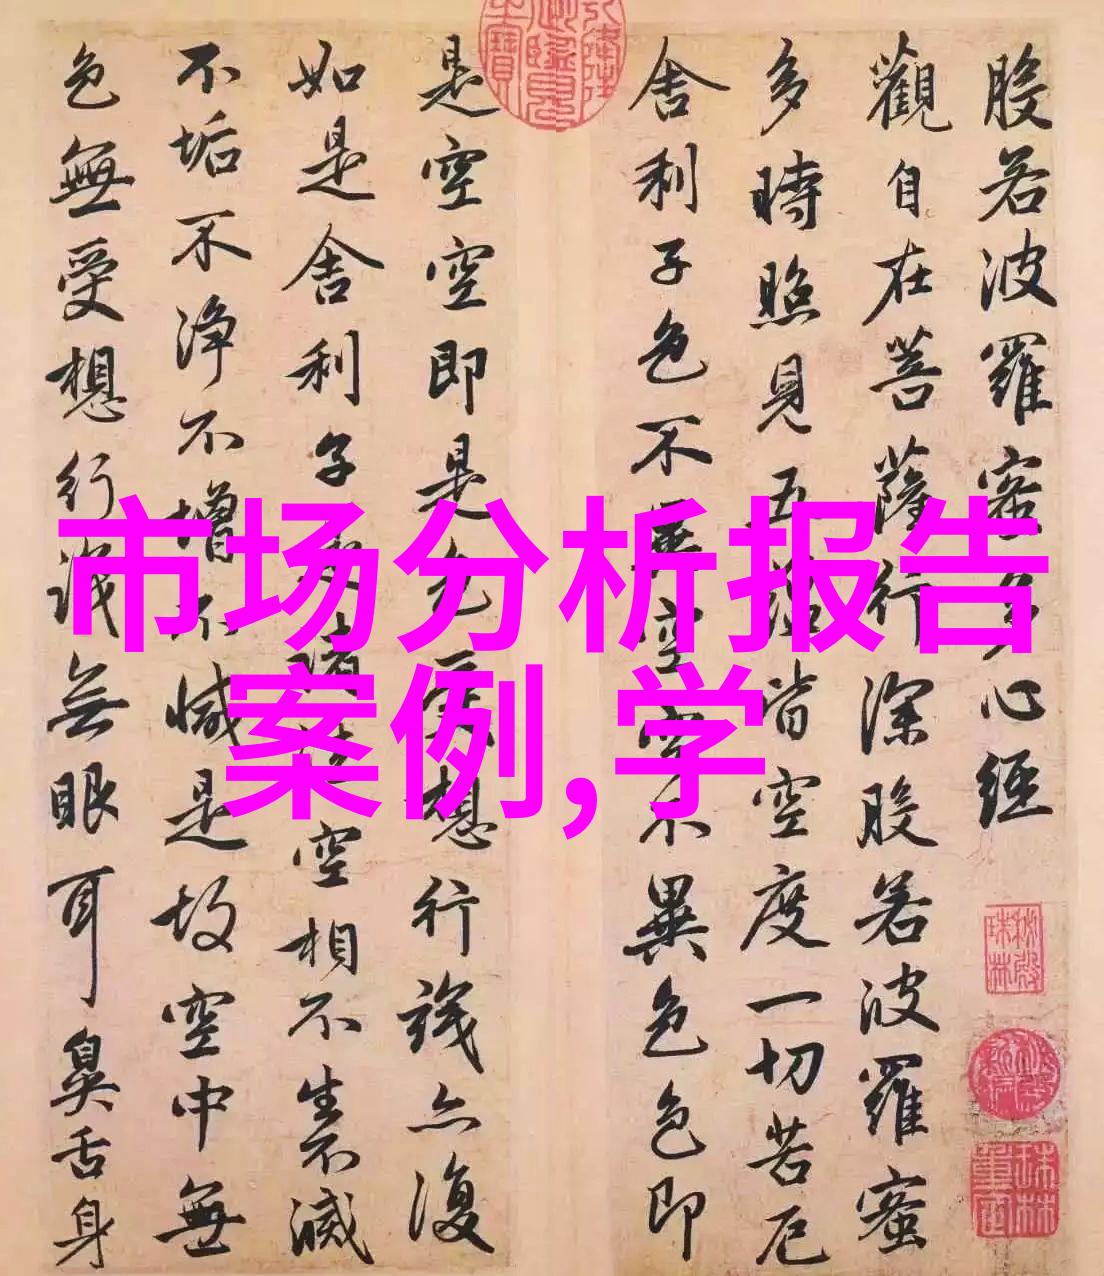 般若波羅蜜多心經
觀自在菩薩行深般若波羅蜜
多時照見五蘊皆空度一切苦厄
舍利子色不異空空不異色色即
是空空即是色受想行識亦復
如是舍利子是諸法空相不生不滅
不垢不淨不增不減是故空中無
色無受想行識無眼耳鼻舌身
市场分析报告
案例,学